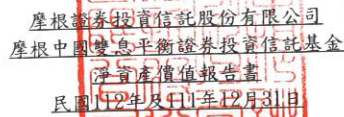 摩根證券投資信託股份有限公司
摩根中國雙息平衡證券投資信託基金
淨資產價值報告書
民國112年及111年12月31日